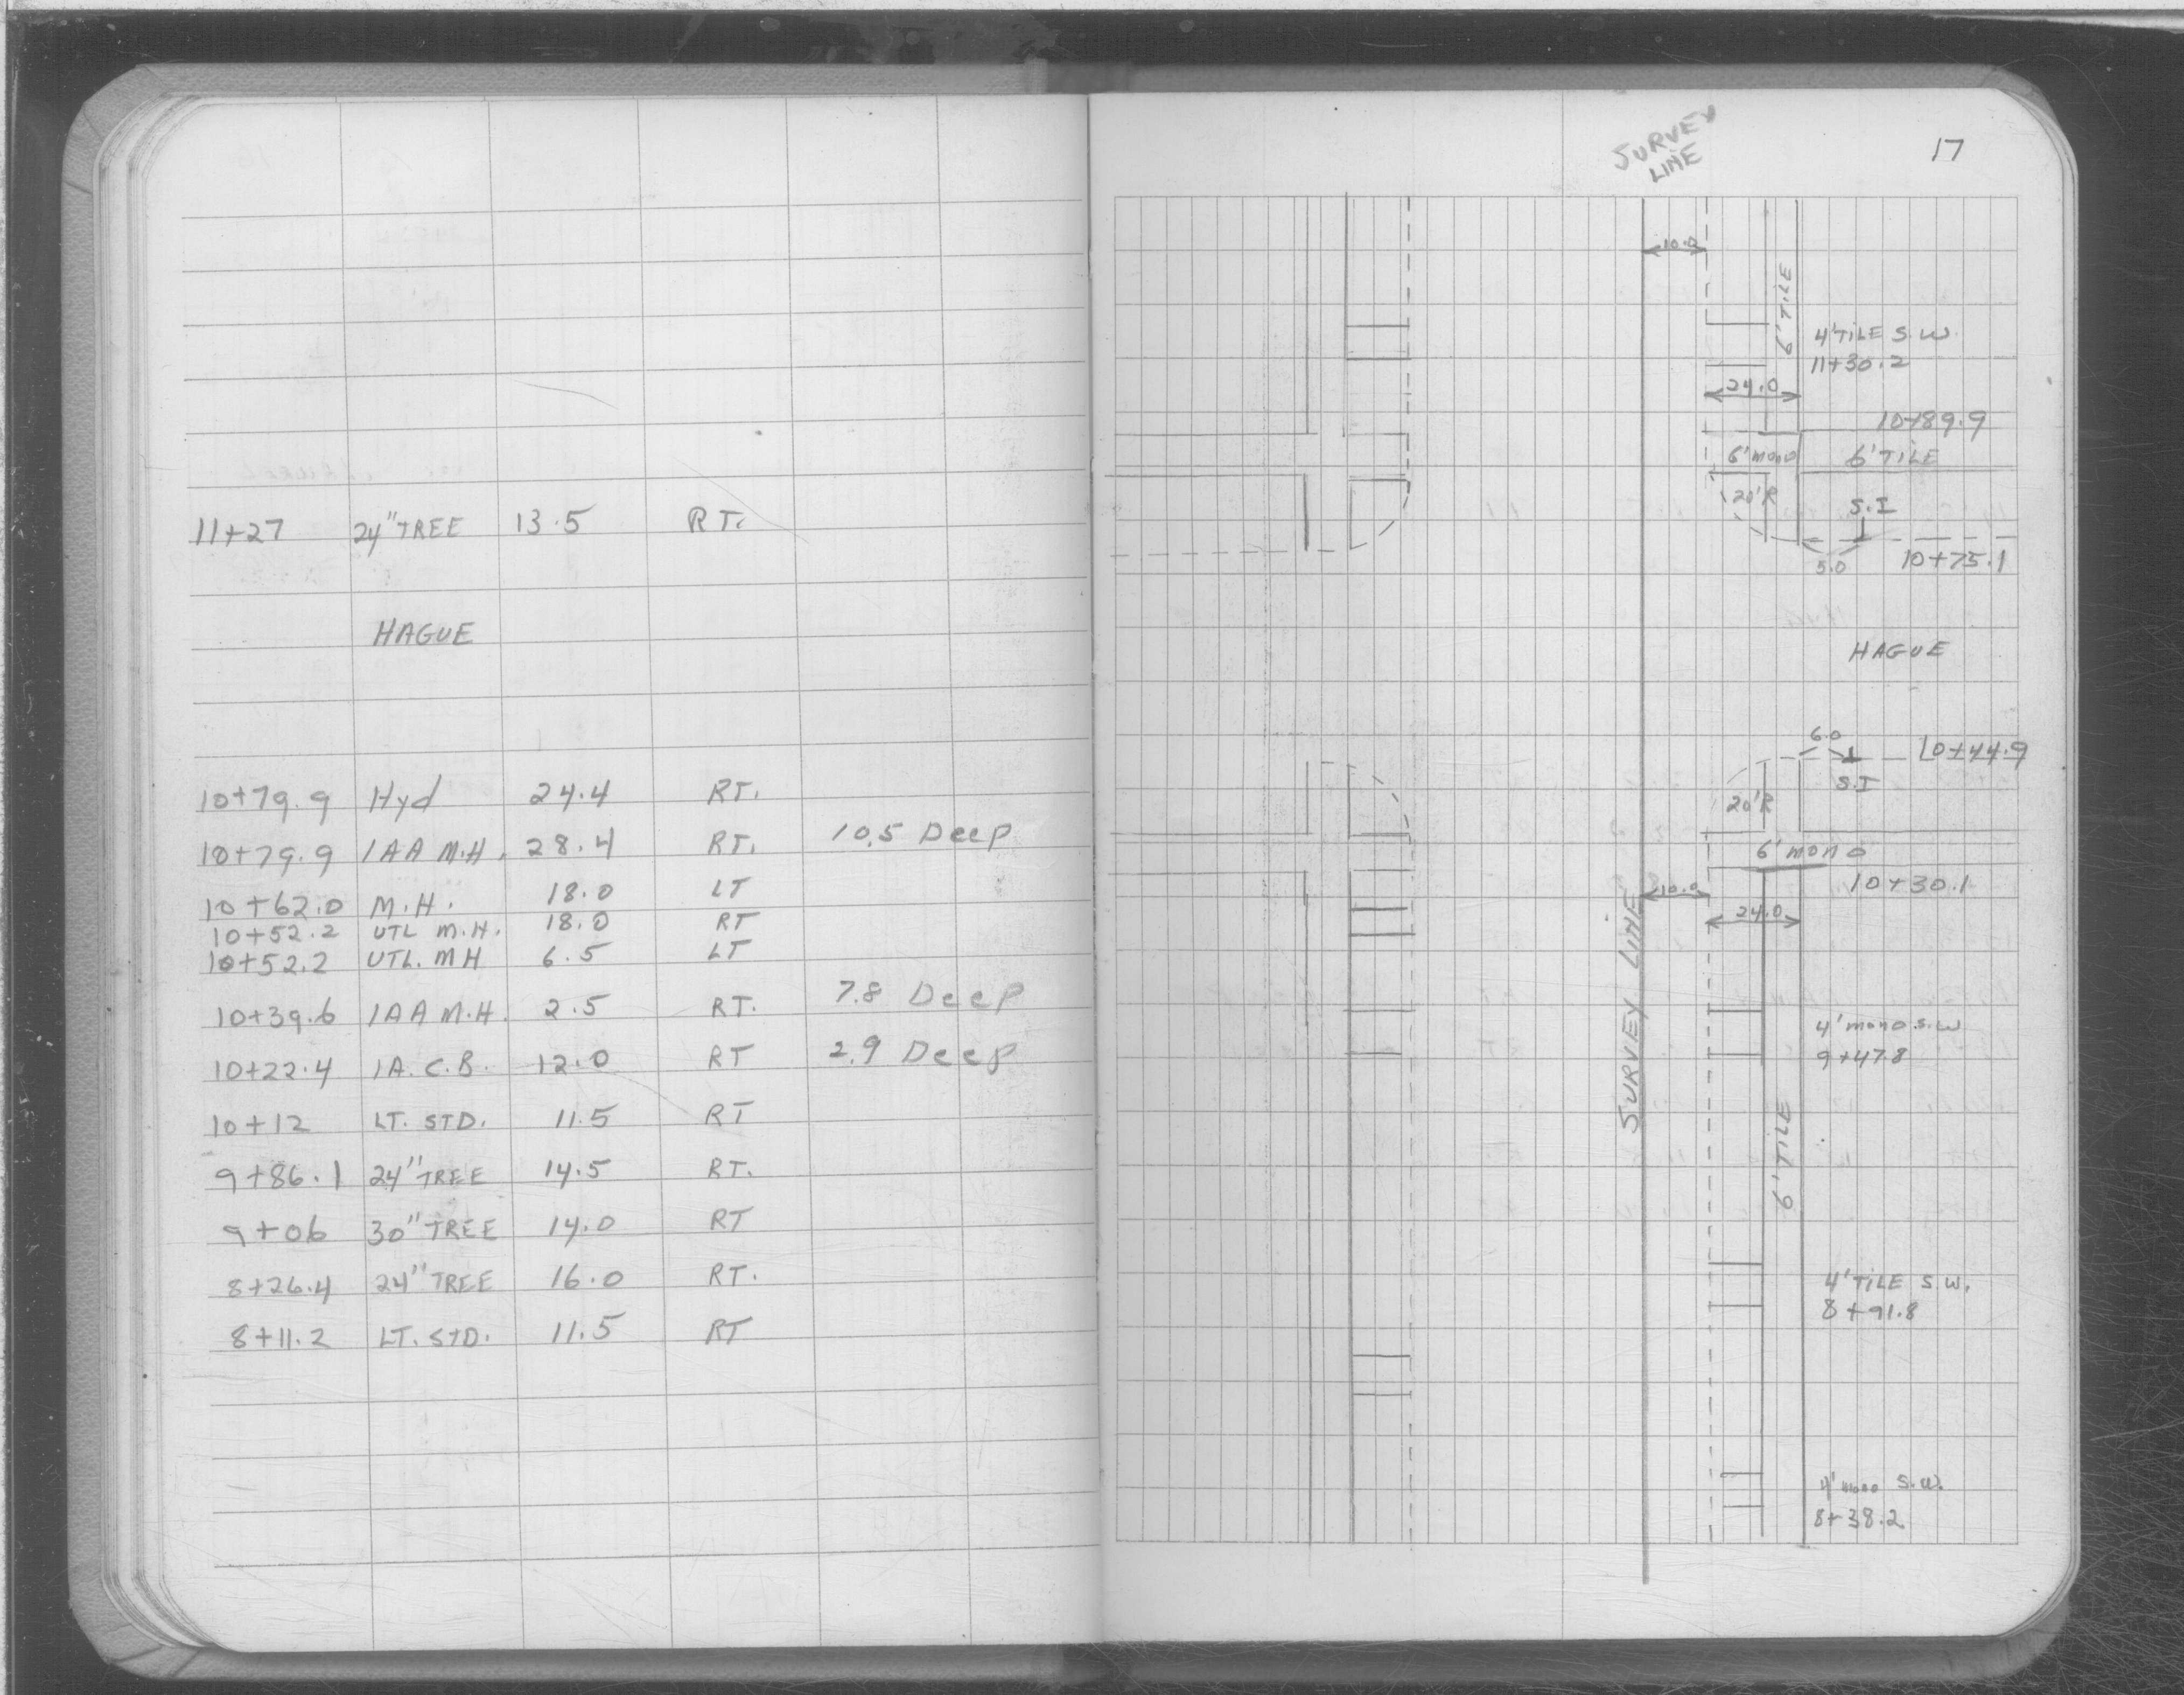 11+27 24" TREE 13.5 RT.
HAGUE
10+79.9 Hyd 24.4 RT.
10+79.9 1AA M.H. 28.4 RT. 10.5 Deep
10+62.0 M.H. 18.0 LT
10+52.2 UTL M.H. 18.0 RT
10+52.2 UTL. MH 6.5 LT
10+39.6 1AA M.H. 2.5 RT. 7.8 Deep
10+22.4 1A. C.B. 12.0 RT 2.9 Deep
10+12 LT. STD. 11.5 RT
9+86.1 24" TREE 14.5 RT.
9+06 30" TREE 14.0 RT
8+26.4 24" TREE 16.0 RT.
8+11.2 LT. STD. 11.5 RT
SURVEY
LINE
17
10.0
6' TILE
4' TILE S.W.
11+30.2
24.0
10+89.9
6' mono 6' TILE
20'R
S.I
5.0 10+75.1
HAGUE
6.0 10+44.9
S.I
20'R
6' mono
10.0 10+30.1
24.0
SURVEY LINE
4' mono s.w
9+47.8
6' TILE
4' TILE S.W.
8+91.8
4' mono S.W.
8+38.2